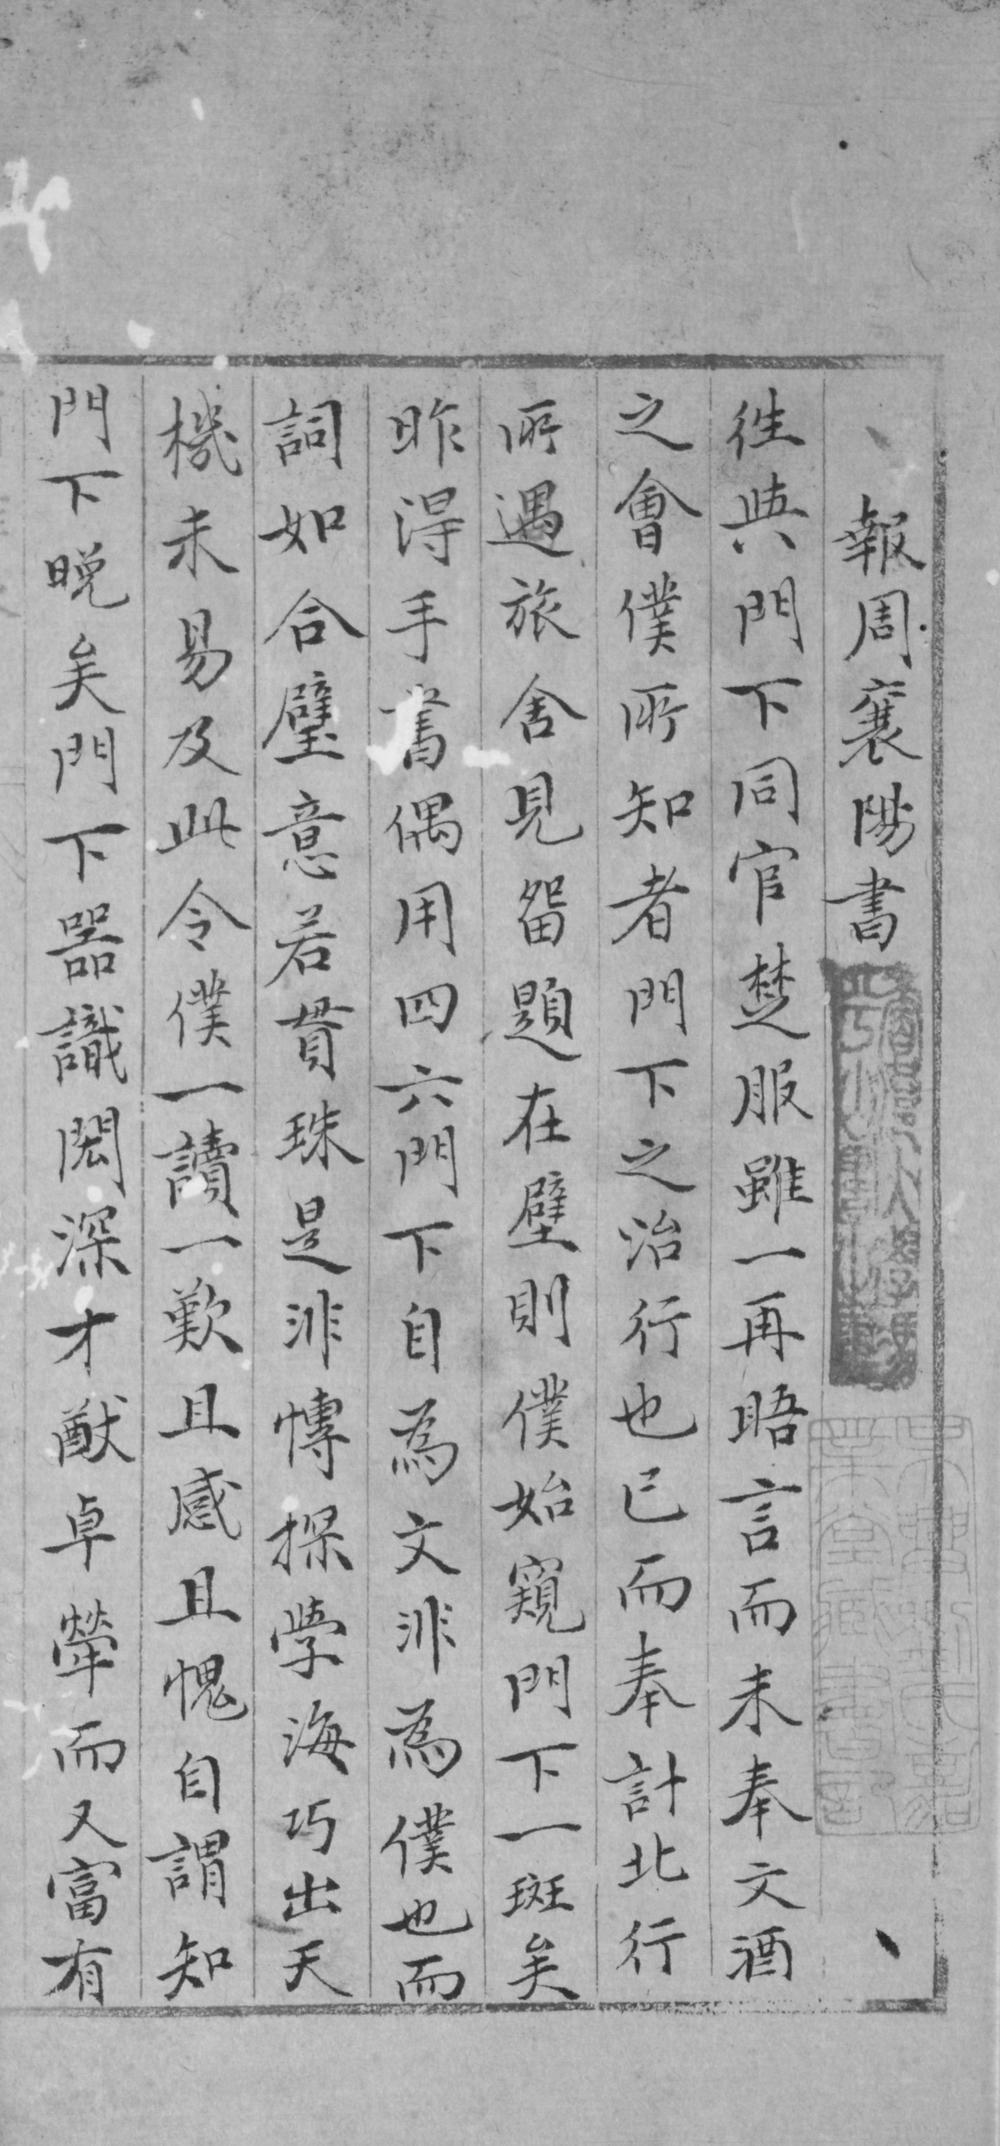 報周襄陽書
往與門下同官楚服雖一再晤言而未奉文酒
之會僕所知者門下之治行也已而奉計北行
所遇旅舍見留題在壁則僕始窺門下一斑矣
昨得手書偶用四六門下自為文非為僕也而
詞如合璧意若貫珠是非愽探學海巧出天
機未易及此令僕一讀一歎且感且愧自謂知
門下晚矣門下器識閎深才猷卓犖而又富有